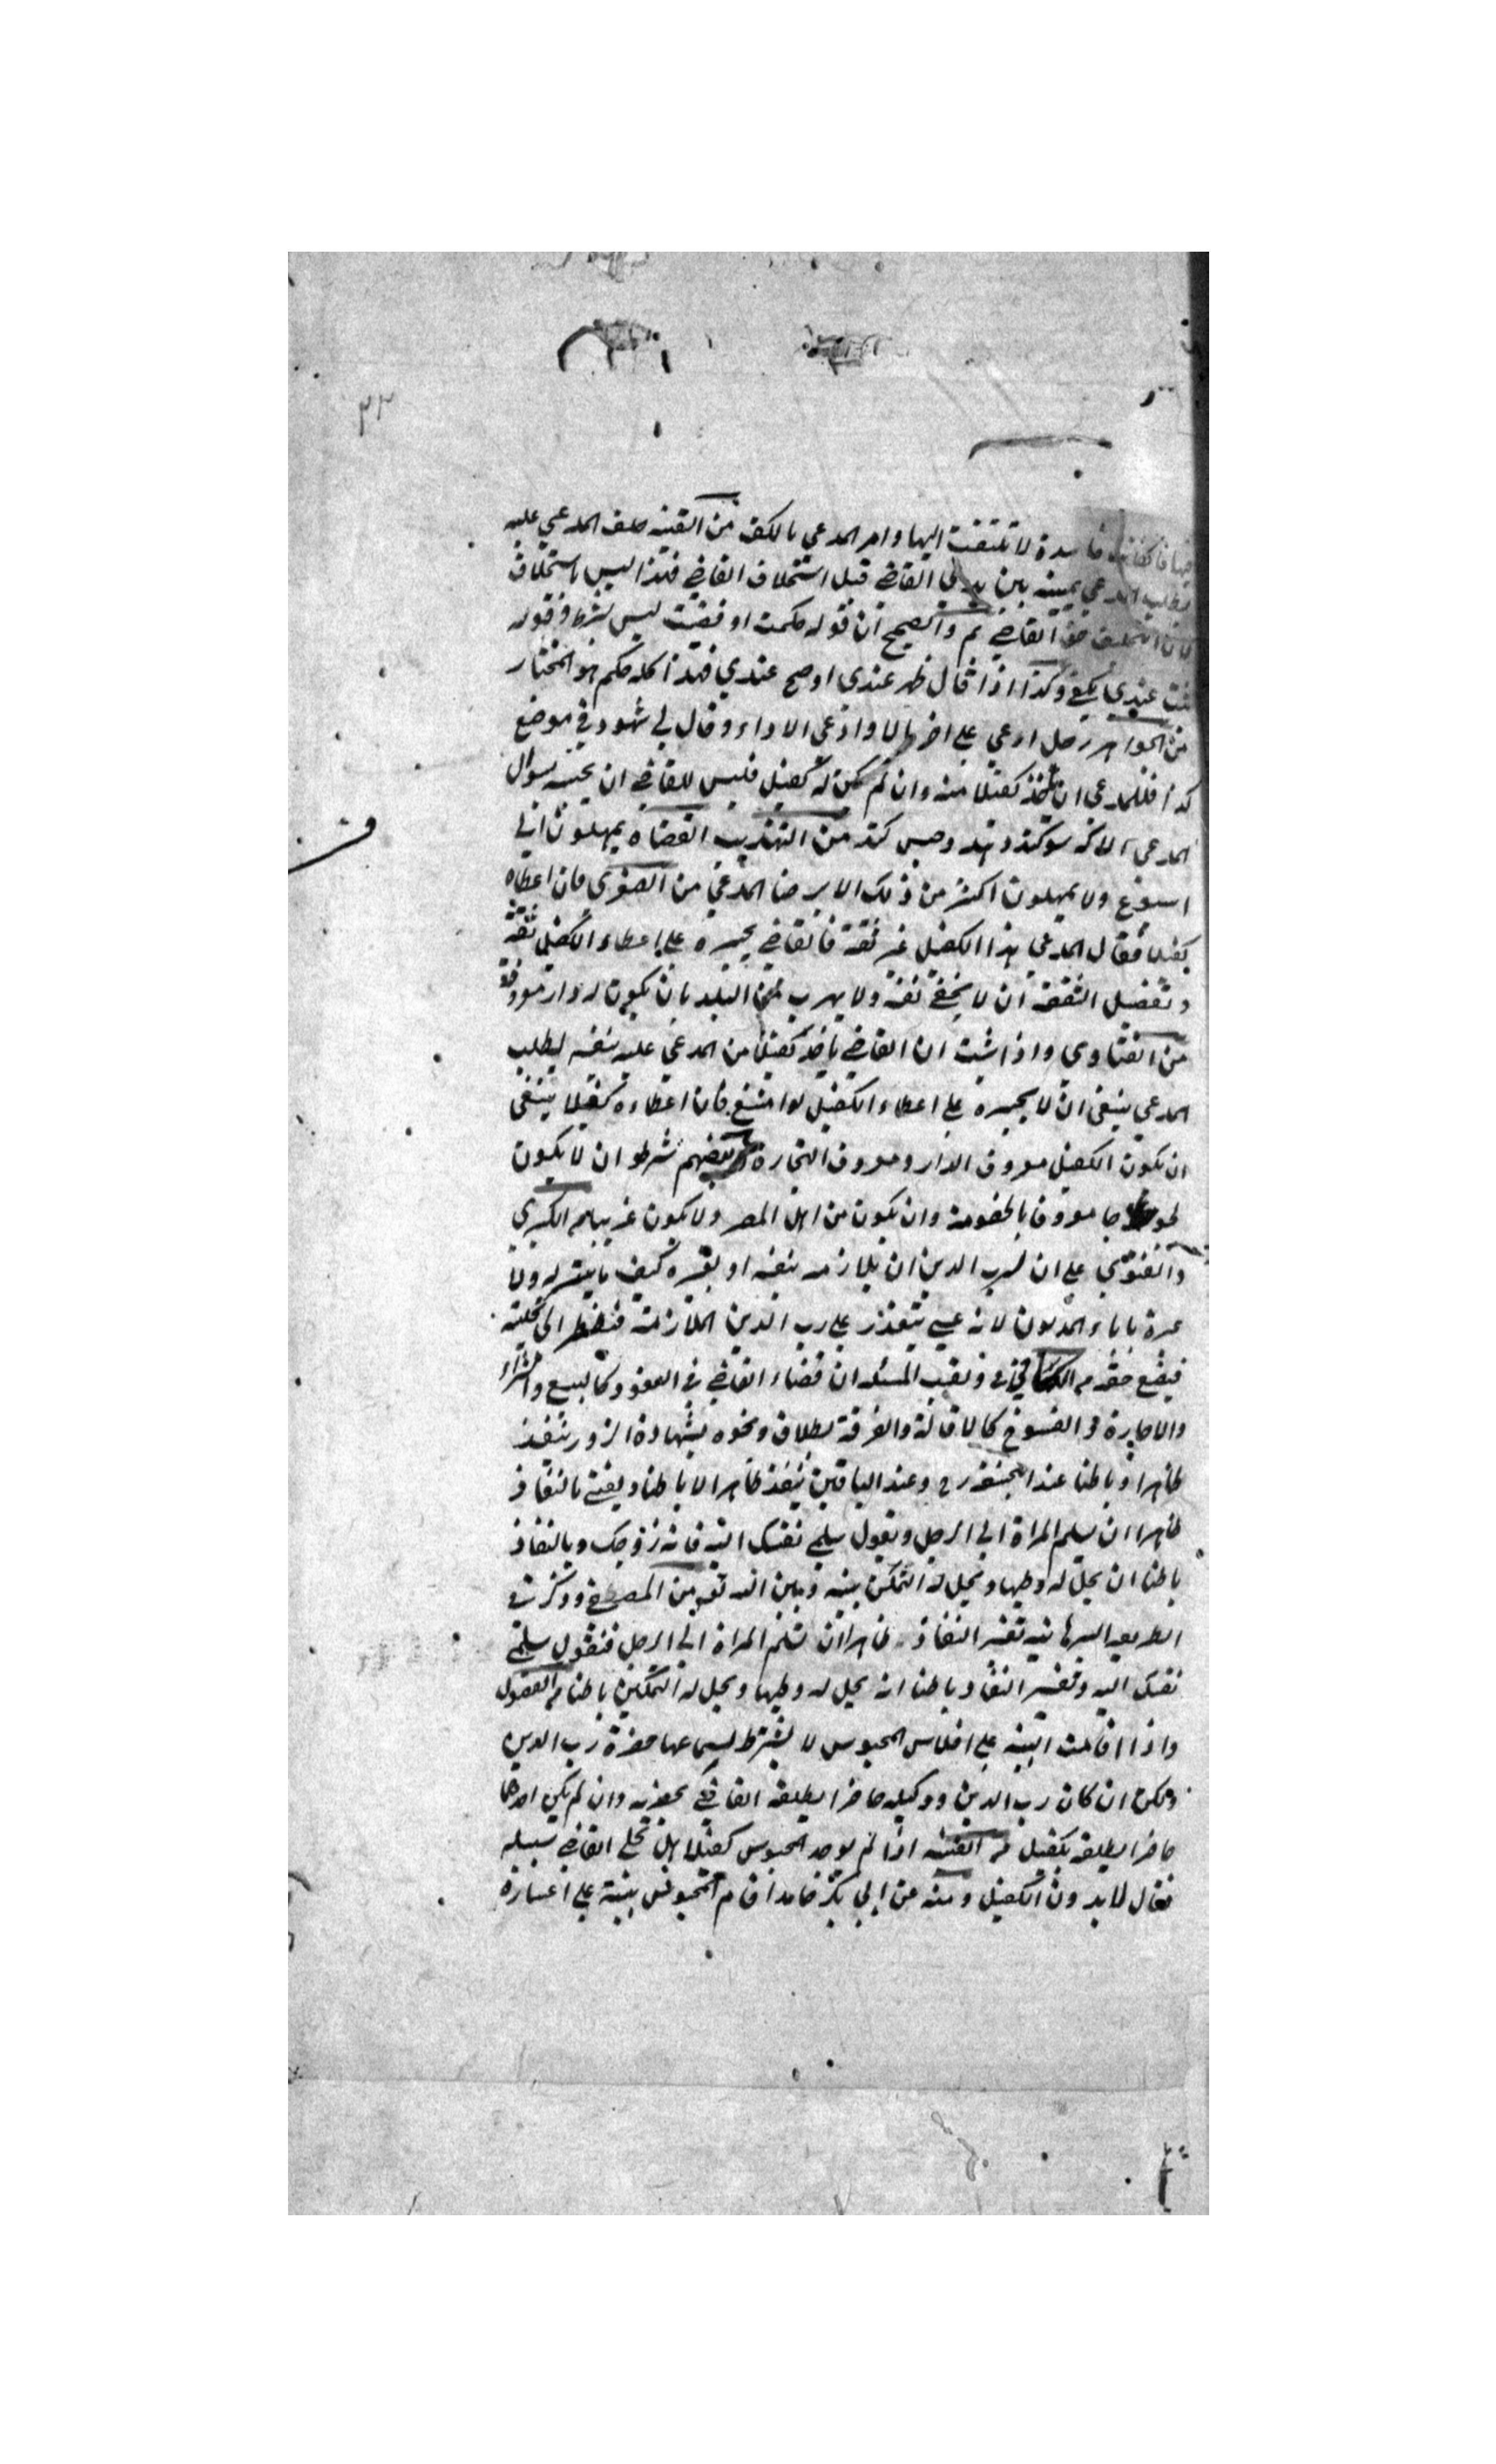 ٣٣
فاسدة لا تلتفت اليها وامر المدعي بالكف من القنيه حلف المدعي عليه
بطلب المدعي يمينه بين يدي القاضي قبل استحلاف القاضي فهذا ليس باستحلاف
لان التحليف حق القاضي م والصحيح ان قوله حكمت او قضيت ليس بشرط وقوله
ثبت عندي يكفي وكذا اذا قال ظهر عندي او صح عندي فهذا كله حكم هو المختار
من الجواهر رجل ادعي علي اخر مالا وادعي الاداء وقال لي شهود في موضع
كذا فللمدعي ان ياخذ كفيلا منه وان لم يكن له كفيل فليس للقاضي ان يحبسه بسوال
المدعي الا كه سوكند وحبس كند من التهذيب القضاه يمهلون الي
اسبوع ولا يمهلون اكثر من ذلك الا برضا المدعي من الصغري فان اعطاه
كفيلا فقال المدعي هذا الكفيل غير ثقة فالقاضي يجبره علي اعطاء الكفيل ثقة
وتفصيل الثقة ان لا يخفي نفسه ولا يهرب من البلد بان يكون له دار معروفة
من الفتاوي واذا ثبت ان القاضي ياخذ كفيلا من المدعي عليه بنفسه لطلب
المدعي ينبغي ان لا يجبره علي اعطاء الكفيل لو امتنع فان اعطاه كفيلا ينبغي
ان يكون الكفيل معروف الدار ومعروف التجارة وبعضهم شرط ان لا يكون
لجوجا معروفا بالخصومة وان يكون من اهل المصر ولا يكون غريبا من الكبري
والفتوي علي ان لرب الدين ان يلازمه بنفسه او بغيره كيف ما يتيسر له ولا
عبرة باباء المديون لانه عسي يتعذر علي رب الدين الملازمة فيضطر الي تخليته
فيضيع حقه م الكافي في ولقب المسئله ان قضاء القاضي في العقود كالبيع والشراء
والاجارة والفسوخ كالاقالة والفرقة بطلاق ونحوه بشهادة الزور ينفذ
ظاهرا وباطنا عند ابيحنيفه رح وعند الباقين ينفذ ظاهرا لا باطنا ويعني بالنفاذ
ظاهرا ان يسلم المراة الي الرجل ويقول سلمي نفسك اليه فانه زوجك وبالنفاذ
باطنا ان يحل له وطيها ويحل له التمكين بينه وبين الله تعم من المصفي وذكر في
الطريقه البرهانيه تفسير النفاذ ظاهرا ان تسلم المراة الي الرجل فيقول سلمي
نفسك اليه وتفسير النفاذ باطنا انه يحل له وطيها ويحل له التمكين باطنا م الفصول
واذا اقامت البينه علي افلاس المحبوس لا يشترط لسماعها حضرة رب الدين
ولكن ان كان رب الدين ووكيله حاضرا يطلقه القاضي بحضرته وان لم يكن احدهما
حاضرا يطلقه بكفيل م القنيه اذا لم يوجد المحبوس كفيلا هل يخلي القاضي سبيله
فقال لا بدون الكفيل ومنه عن ابي بكر خامد اقام المحبوس بينة علي اعساره